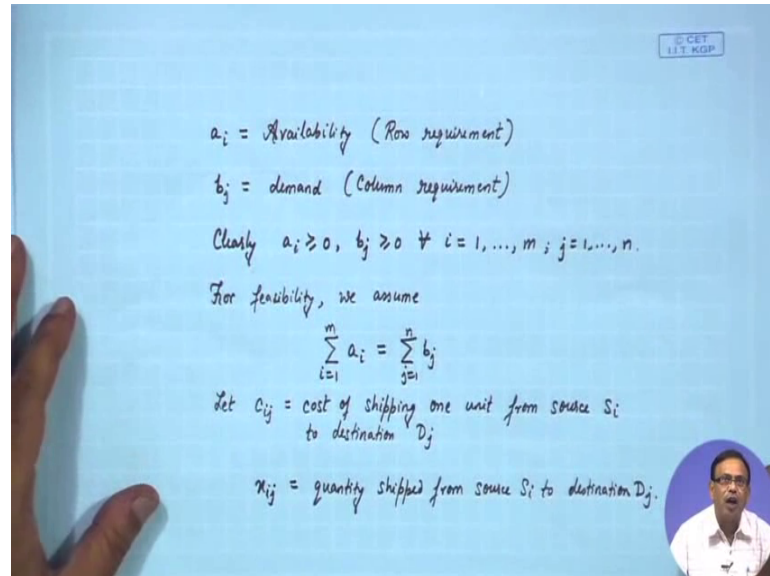 © CET
I.I.T. KGP
a_i = Availability (Row requirement)
b_j = demand (Column requirement)
Clearly a_i ≥ 0, b_j ≥ 0 ∀ i = 1, ..., m ; j = 1, ..., n.
For feasibility, we assume
∑_{i=1}^{m} a_i = ∑_{j=1}^{n} b_j
Let c_{ij} = cost of shipping one unit from source S_i
to destination D_j
x_{ij} = quantity shipped from source S_i to destination D_j.